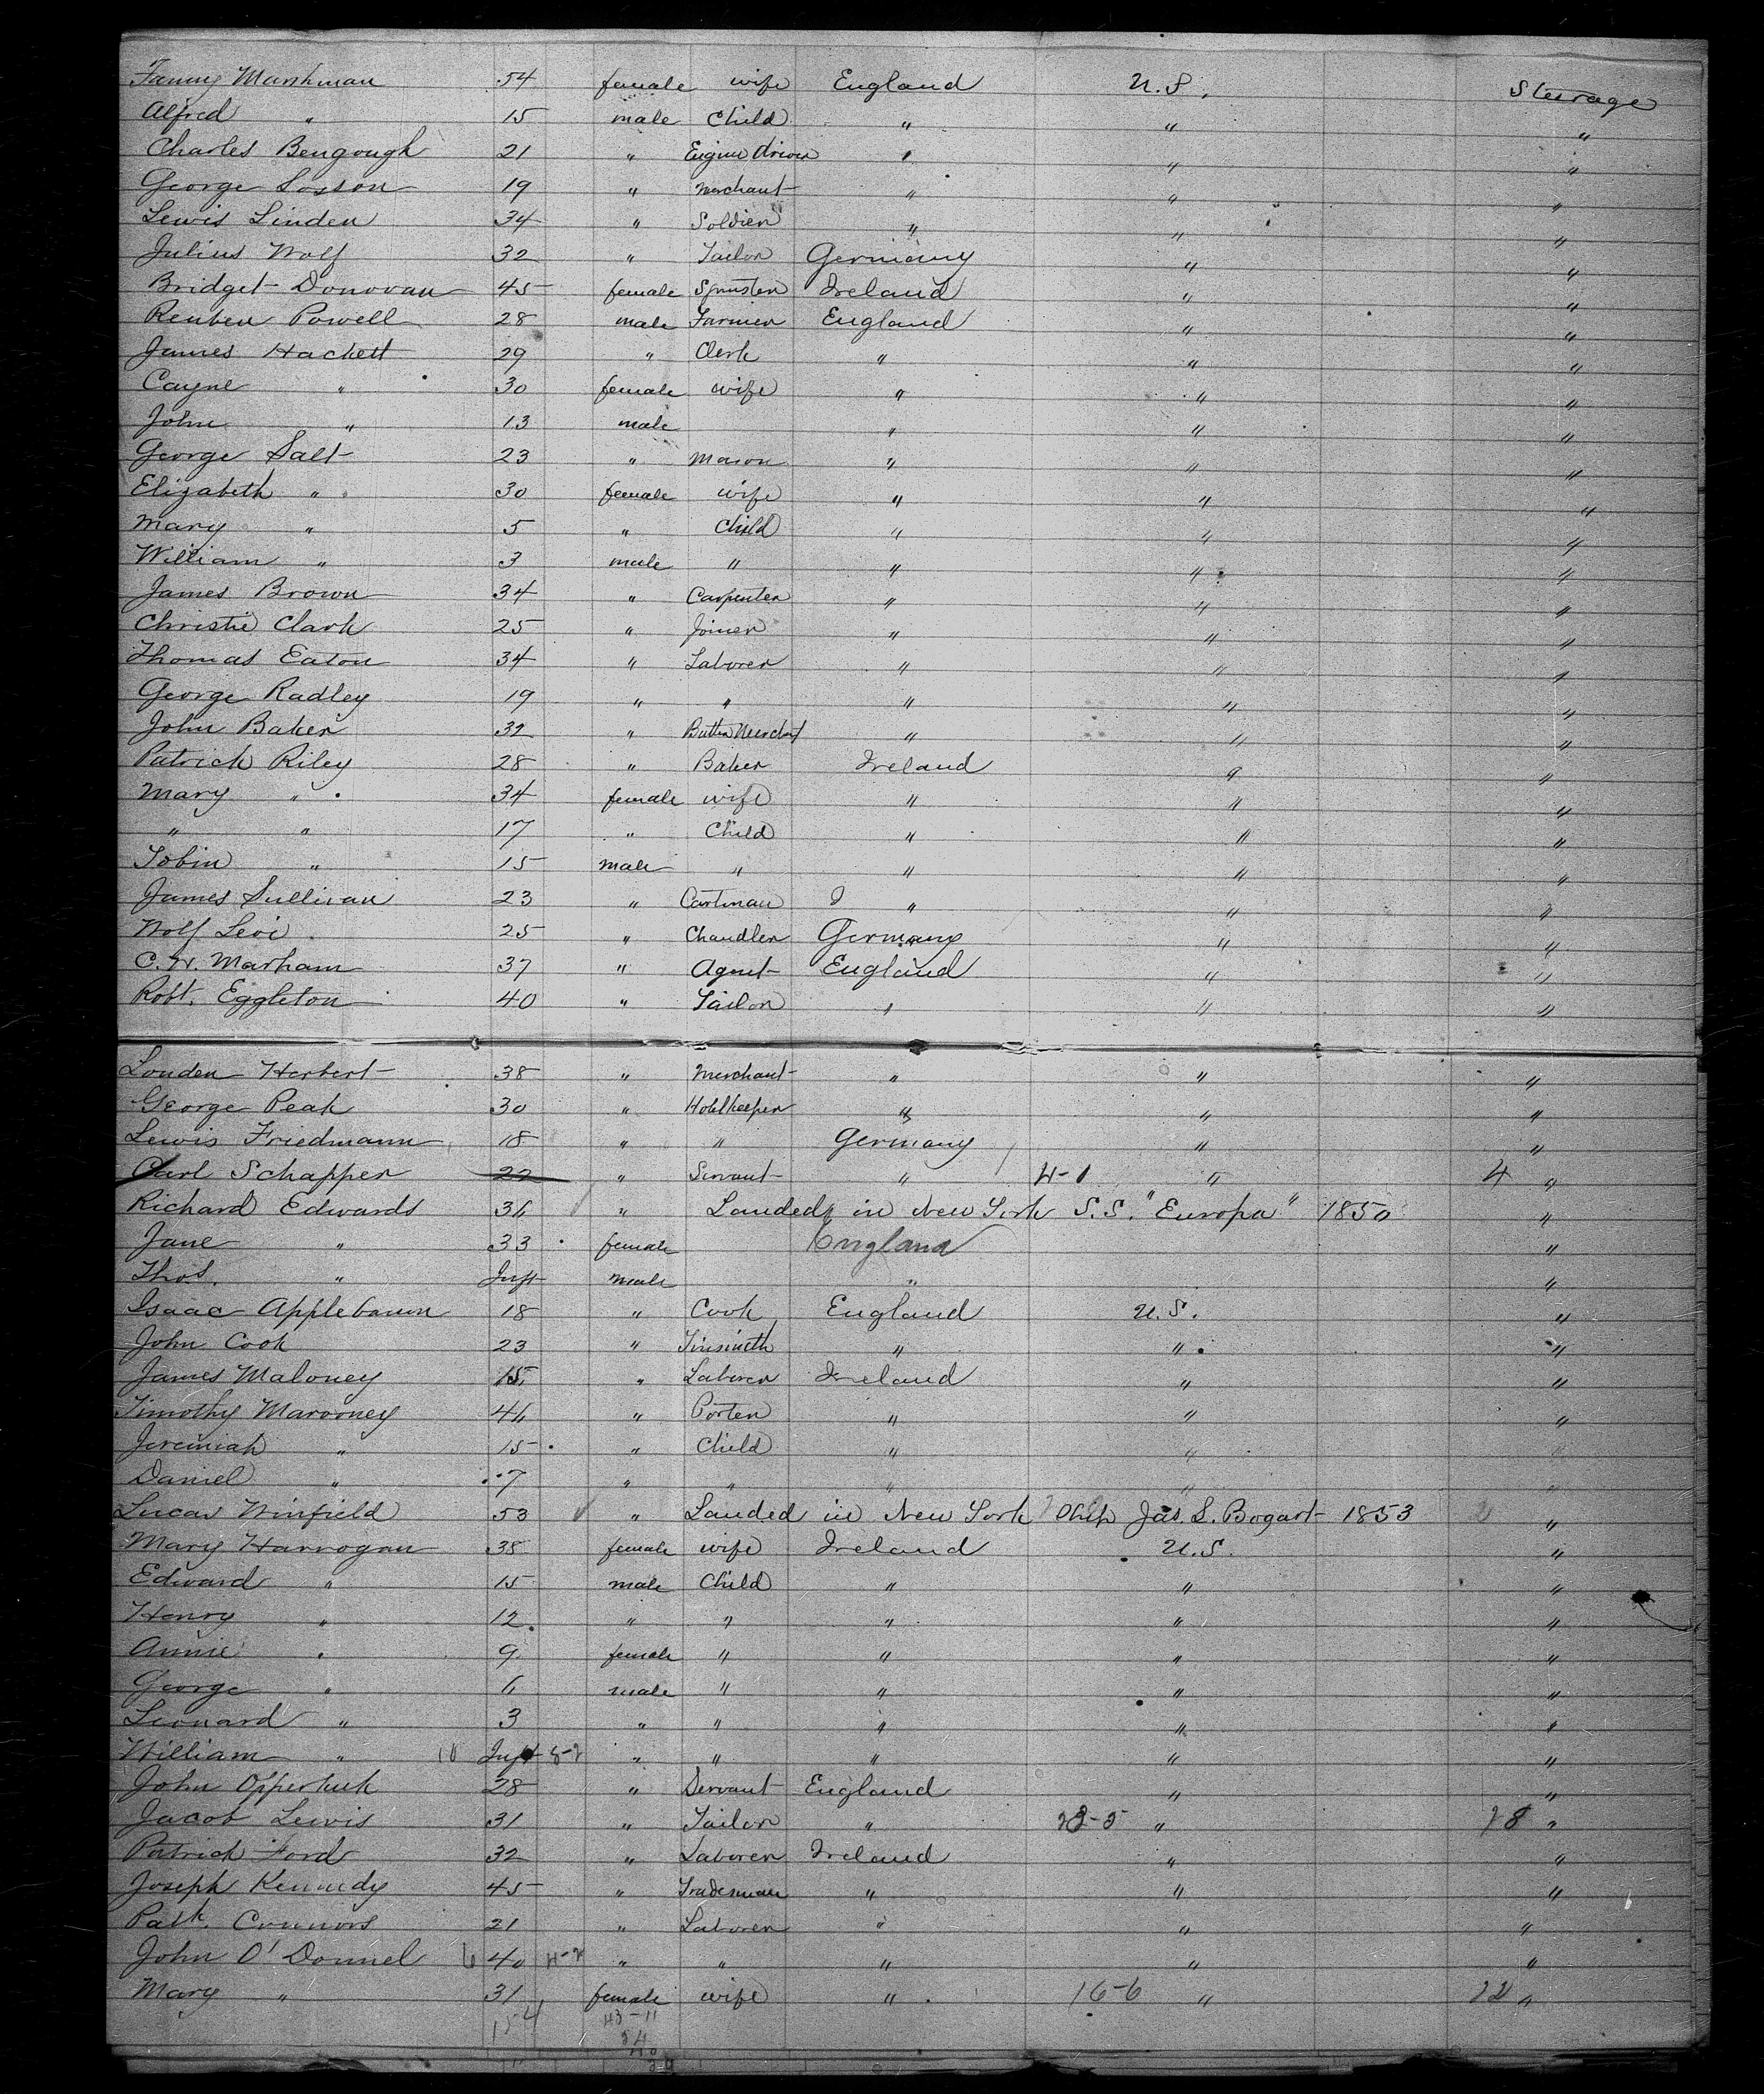 Fanny Marshman 54 female wife England U.S. Steerage
Alfred " 15 male Child " " "
Charles Bengough 21 " Engine driver " " "
George Sosson 19 " Merchant " " "
Lewis Linden 34 " Soldier " " "
Julius Wolf 32 " Tailor Germany " "
Bridget Donovan 45 female Spinster Ireland " "
Reuben Powell 28 male Farmer England " "
James Hackett 29 " Clerk " " "
Cayne " 30 female wife " " "
John " 13 male " " "
George Salt 23 " Mason " " "
Elizabeth " 30 female wife " " "
Mary " 5 " Child " " "
William " 3 male " " " "
James Brown 34 " Carpenter " " "
Christie Clark 25 " Joiner " " "
Thomas Eaton 34 " Laborer " " "
George Radley 19 " " " " "
John Baker 32 " Butter Merchant " " "
Patrick Riley 28 " Baker Ireland " "
Mary " 34 female wife " " "
" " 17 " Child " " "
Tobin " 15 male " " " "
James Sullivan 23 " Cartman " " "
Wolf Levi 25 " Chandler Germany " "
C. W. Marham 37 " Agent England " "
Robt. Eggleton 40 " Tailor " " "
Louden Herbert 38 " Merchant " " "
George Peak 30 " Hotelkeeper " " "
Lewis Friedmann 18 " " Germany " "
Carl Schapper 22 " Servant " 4-1 " 4 "
Richard Edwards 36 " Landed in New York S.S. "Europa" 1850 "
Jane " 33 female England "
Thos. " Inft male " "
Isaac Applebaum 18 " Cook England U.S. "
John Cook 23 " Tinsmith " " "
James Maloney 15 " Laborer Ireland " "
Timothy Marooney 46 " Porter " " "
Jeremiah " 15 " Child " " "
Daniel " 7 " " " " "
Lucas Winfield 53 " Landed in New York Ship Jas. L. Bogart 1853 "
Mary Harrogan 38 female wife Ireland U.S. "
Edward " 15 male Child " " "
Henry " 12 " " " " "
Annie " 9 female " " " "
George " 6 male " " " "
Leonard " 3 " " " " "
William " 10 Inft 8-2 " " " " "
John Opperhuk 28 " Servant England " "
Jacob Lewis 31 " Tailor " 23-5 " 28 "
Patrick Ford 32 " Laborer Ireland " "
Joseph Kennedy 45 " Tradesman " " "
Patk. Connors 21 " Laborer " " "
John O'Donnel 6 40 4-2 " " " " "
Mary " 31 female wife " 16-6 " 22 "
154 43-11